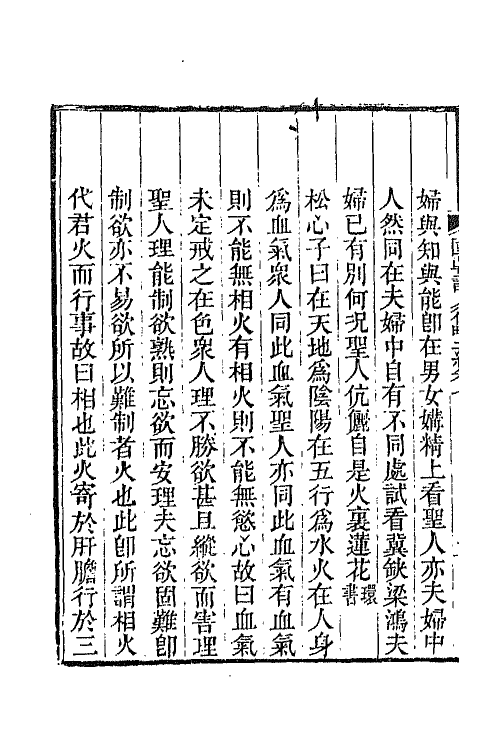 婦與知與能卽在男女媾精上看聖人亦夫婦中
人然同在夫婦中自有不同處試看冀缺梁鴻夫
婦已有別何况聖人伉儷自是火裏蓮花環書
松心子曰在天地爲陰陽在五行爲水火在人身
爲血氣衆人同此血氣聖人亦同此血氣有血氣
則不能無相火有相火則不能無慾心故曰血氣
未定戒之在色衆人理不勝欲甚且縱欲而害理
聖人理能制欲熟則忘欲而安理夫忘欲固難卽
制欲亦不易欲所以難制者火也此卽所謂相火
代君火而行事故曰相也此火寄於肝膽行於三